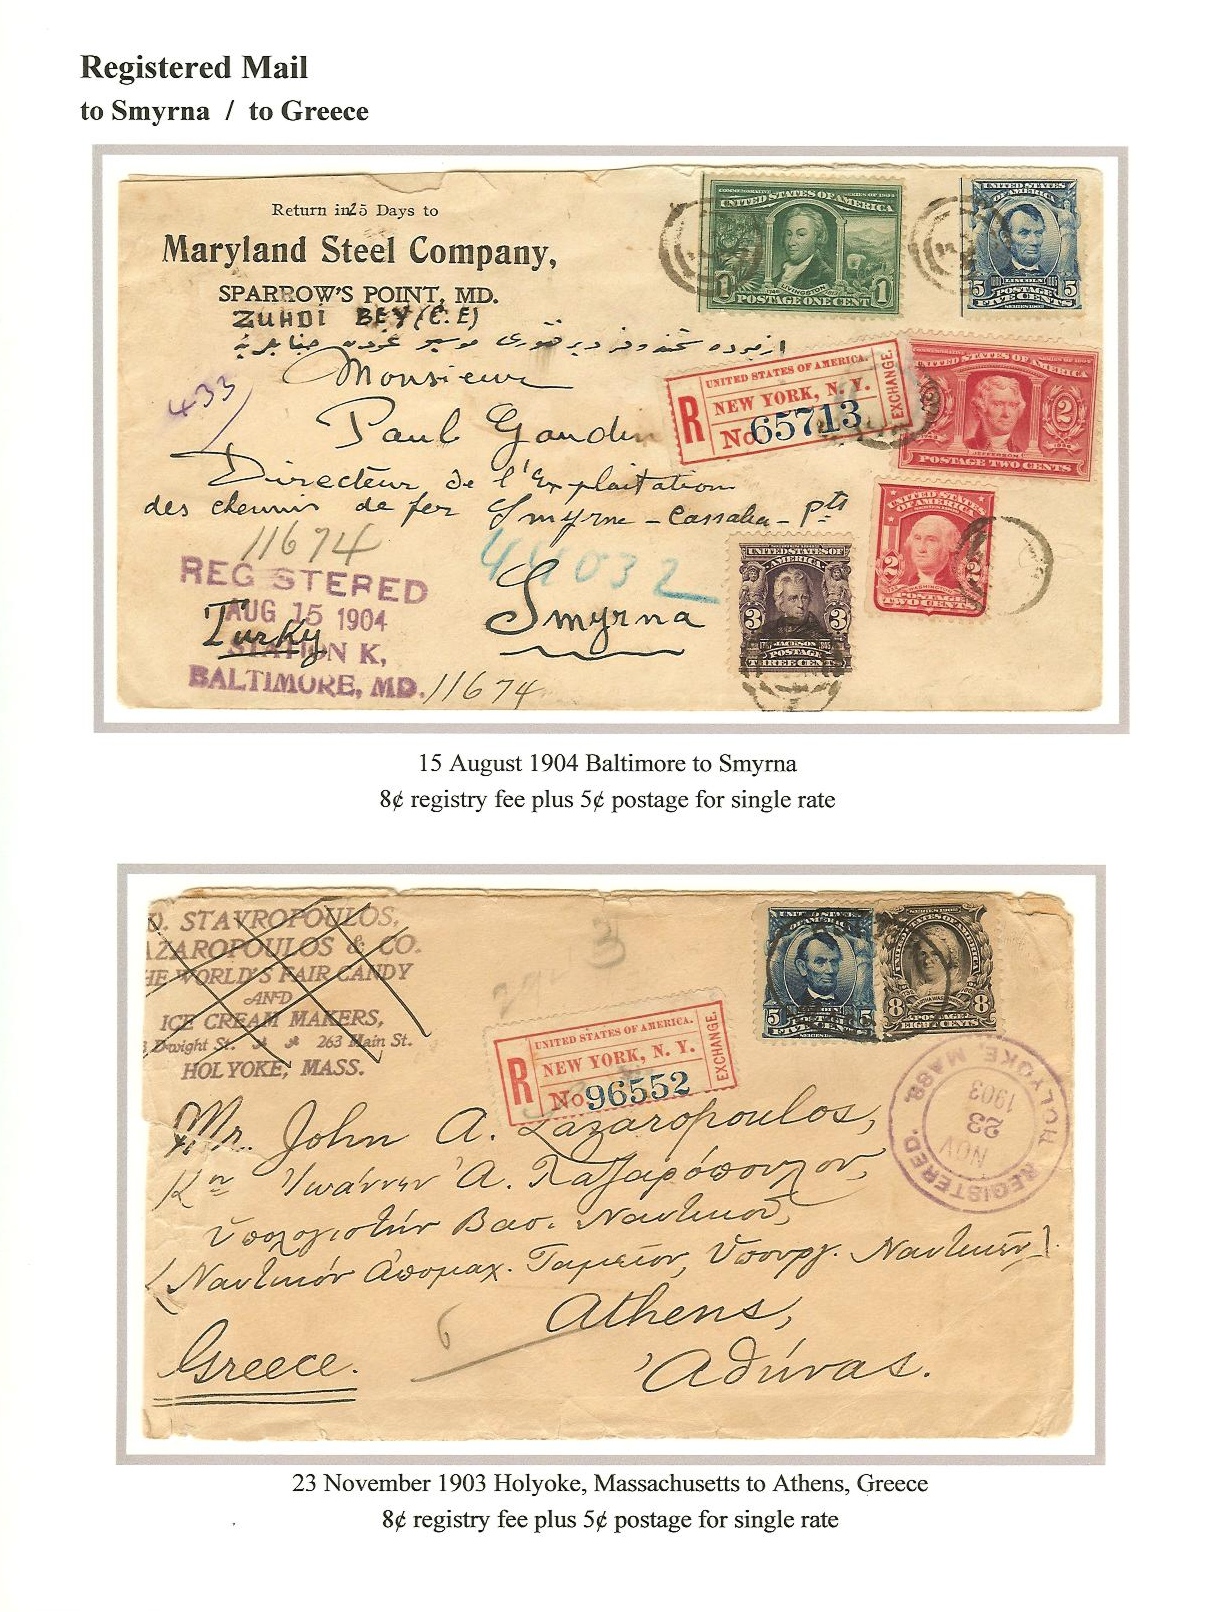 Registered Mail
to Smyrna / to Greece
Return in 25 Days to
Maryland Steel Company,
SPARROW'S POINT, MD.
ZUHDI BEY (C.E)
Monsieur
433
Paul Gaudin
Directeur de l'Exploitation
des chemins de fer Smyrne-Cassaba-Pts
11674
44032
Smyrna
Turky
REGISTERED
AUG 15 1904
STATION K,
BALTIMORE, MD.
11674
COMMEMORATIVE SERIES OF 1904
UNITED STATES OF AMERICA
1 LIVINGSTON 1
POSTAGE ONE CENT
UNITED STATES
OF AMERICA
5 LINCOLN 5
POSTAGE
FIVE CENTS
R
UNITED STATES OF AMERICA.
NEW YORK, N. Y.
No 65713
EXCHANGE.
UNITED STATES OF AMERICA
2
JEFFERSON
POSTAGE TWO CENTS
UNITED STATES
OF AMERICA
2 2
WASHINGTON
POSTAGE
TWO CENTS
UNITED STATES OF
AMERICA
3 3
JACKSON
POSTAGE
THREE CENTS
15 August 1904 Baltimore to Smyrna
8¢ registry fee plus 5¢ postage for single rate
STAVROPOULOS,
AZAROPOULOS & CO.
HE WORLD'S FAIR CANDY
AND
ICE CREAM MAKERS,
Dwight St. 263 Main St.
HOLYOKE, MASS.
3
R
UNITED STATES OF AMERICA.
NEW YORK, N. Y.
No 96552
EXCHANGE.
UNITED STATES
OF AMERICA
5 5
FIVE CENTS
SERIES 1902
UNITED STATES OF AMERICA
8 8
POSTAGE
EIGHT CENTS
HOLYOKE MASS.
REGISTERED.
NOV
23
1903
Mr. John A. Lazaropoulos,
Κον Ἰωάννην Ἀ. Λαζαρόπουλον,
Ὑπολογιστὴν Βασ. Ναυτικοῦ,
(Ναυτικὸν Ἀπομαχ. Ταμεῖον, Ὑπουργ. Ναυτικῶν).
Athens,
6
Ἀθήνας.
Greece.
23 November 1903 Holyoke, Massachusetts to Athens, Greece
8¢ registry fee plus 5¢ postage for single rate